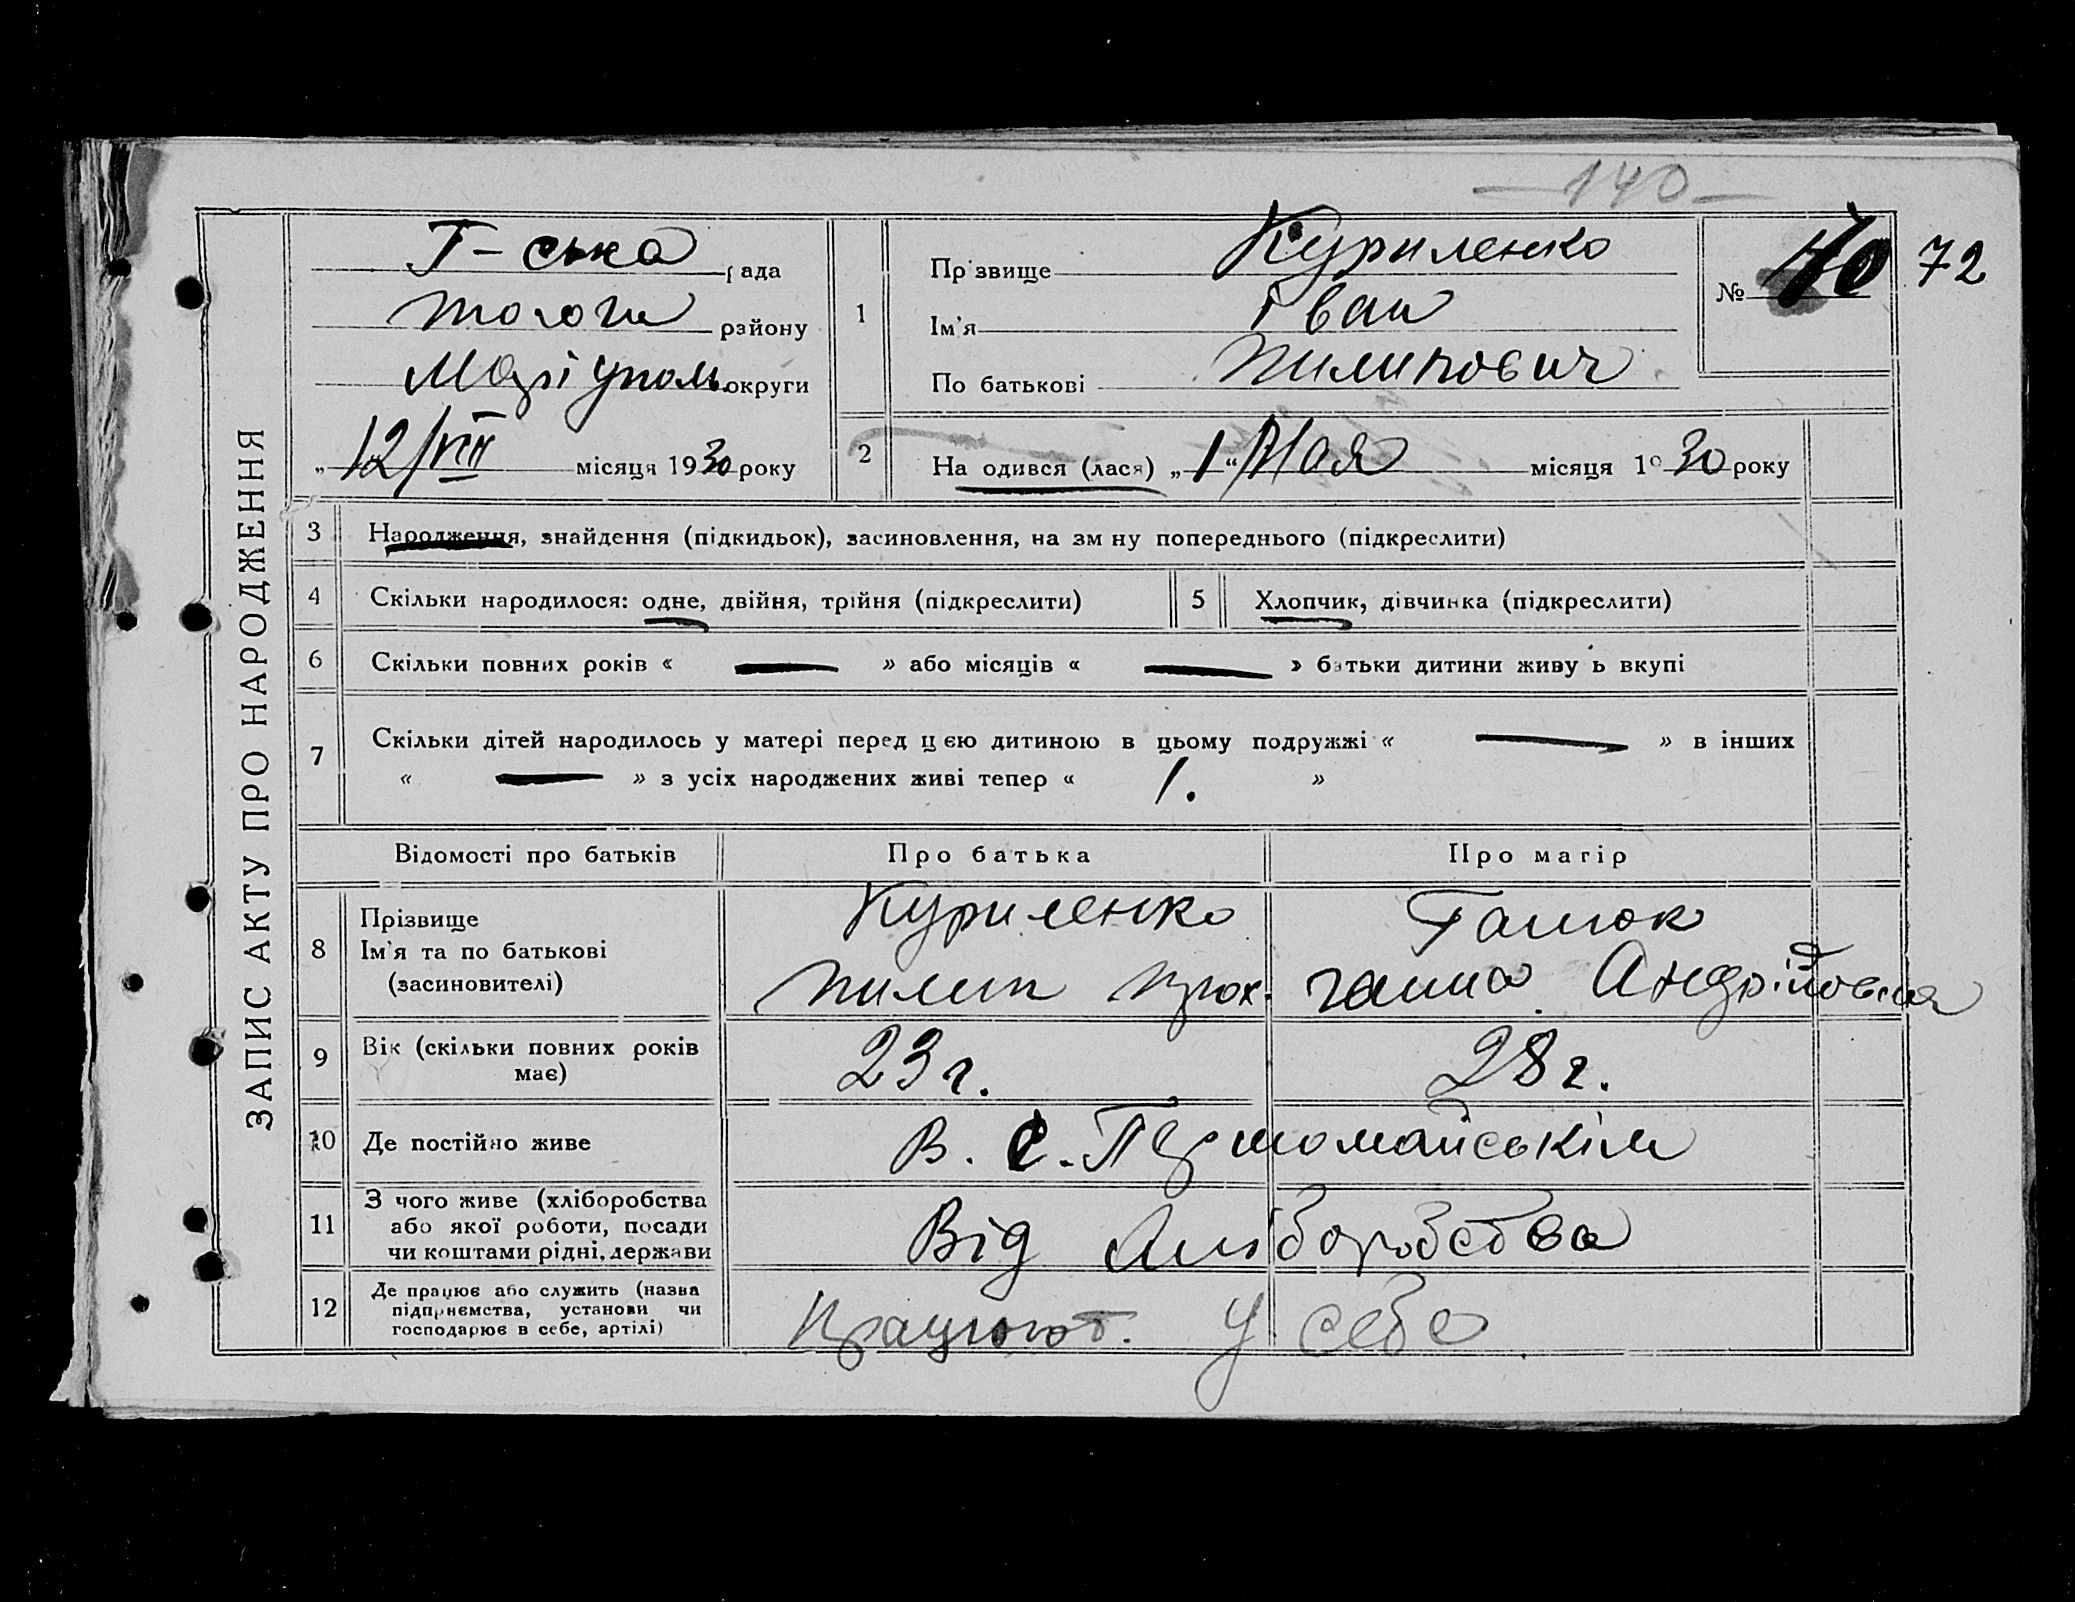 — 140 —
ЗАПИС АКТУ ПРО НАРОДЖЕННЯ
Г-ська рада
Пологи району
Маріуполь округи
„ 12/VIII місяця 1930 року
1
Прізвище Куриленко
Ім'я Іван
По батькові Пилипович
№ 70 72
2 На одився (лася) „ 1 " Мая місяця 1930 року
3 Народження, знайдення (підкидьок), засиновлення, на зм ну попереднього (підкреслити)
4 Скільки народилося: одне, двійня, трійня (підкреслити) 5 Хлопчик, дівчинка (підкреслити)
6 Скільки повних років « — » або місяців « — » батьки дитини живу ь вкупі
7 Скільки дітей народилось у матері перед цією дитиною в цьому подружжі « — » в інших
« — » з усіх народжених живі тепер « 1. »
Відомості про батьків Про батька Про матір
8 Прізвище
Ім'я та по батькові
(засиновителі)
Куриленко
Пилип Прох.
Галюк
Ганна Андріївна
9 Вік (скільки повних років
має)
23 г. 28 г.
10 Де постійно живе В. С. Першомайськім
11 З чого живе (хліборобства
або якої роботи, посади
чи коштами рідні, держави
Від хліборобства
12 Де працює або служить (назва
підприємства, установи чи
господарює в себе, артілі)
Працюют. у себе